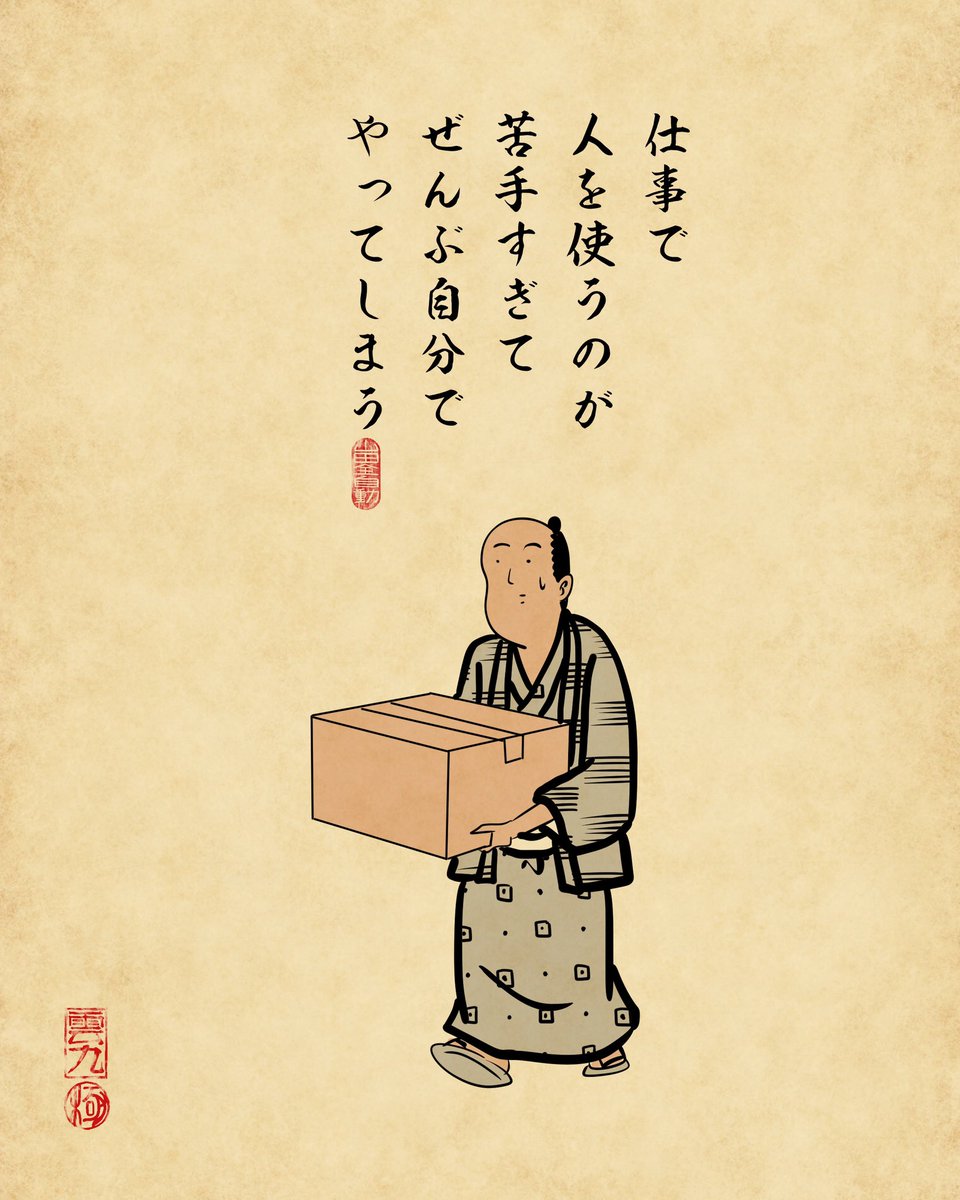 仕事で
人を使うのが
苦手すぎて
ぜんぶ自分で
やってしまう